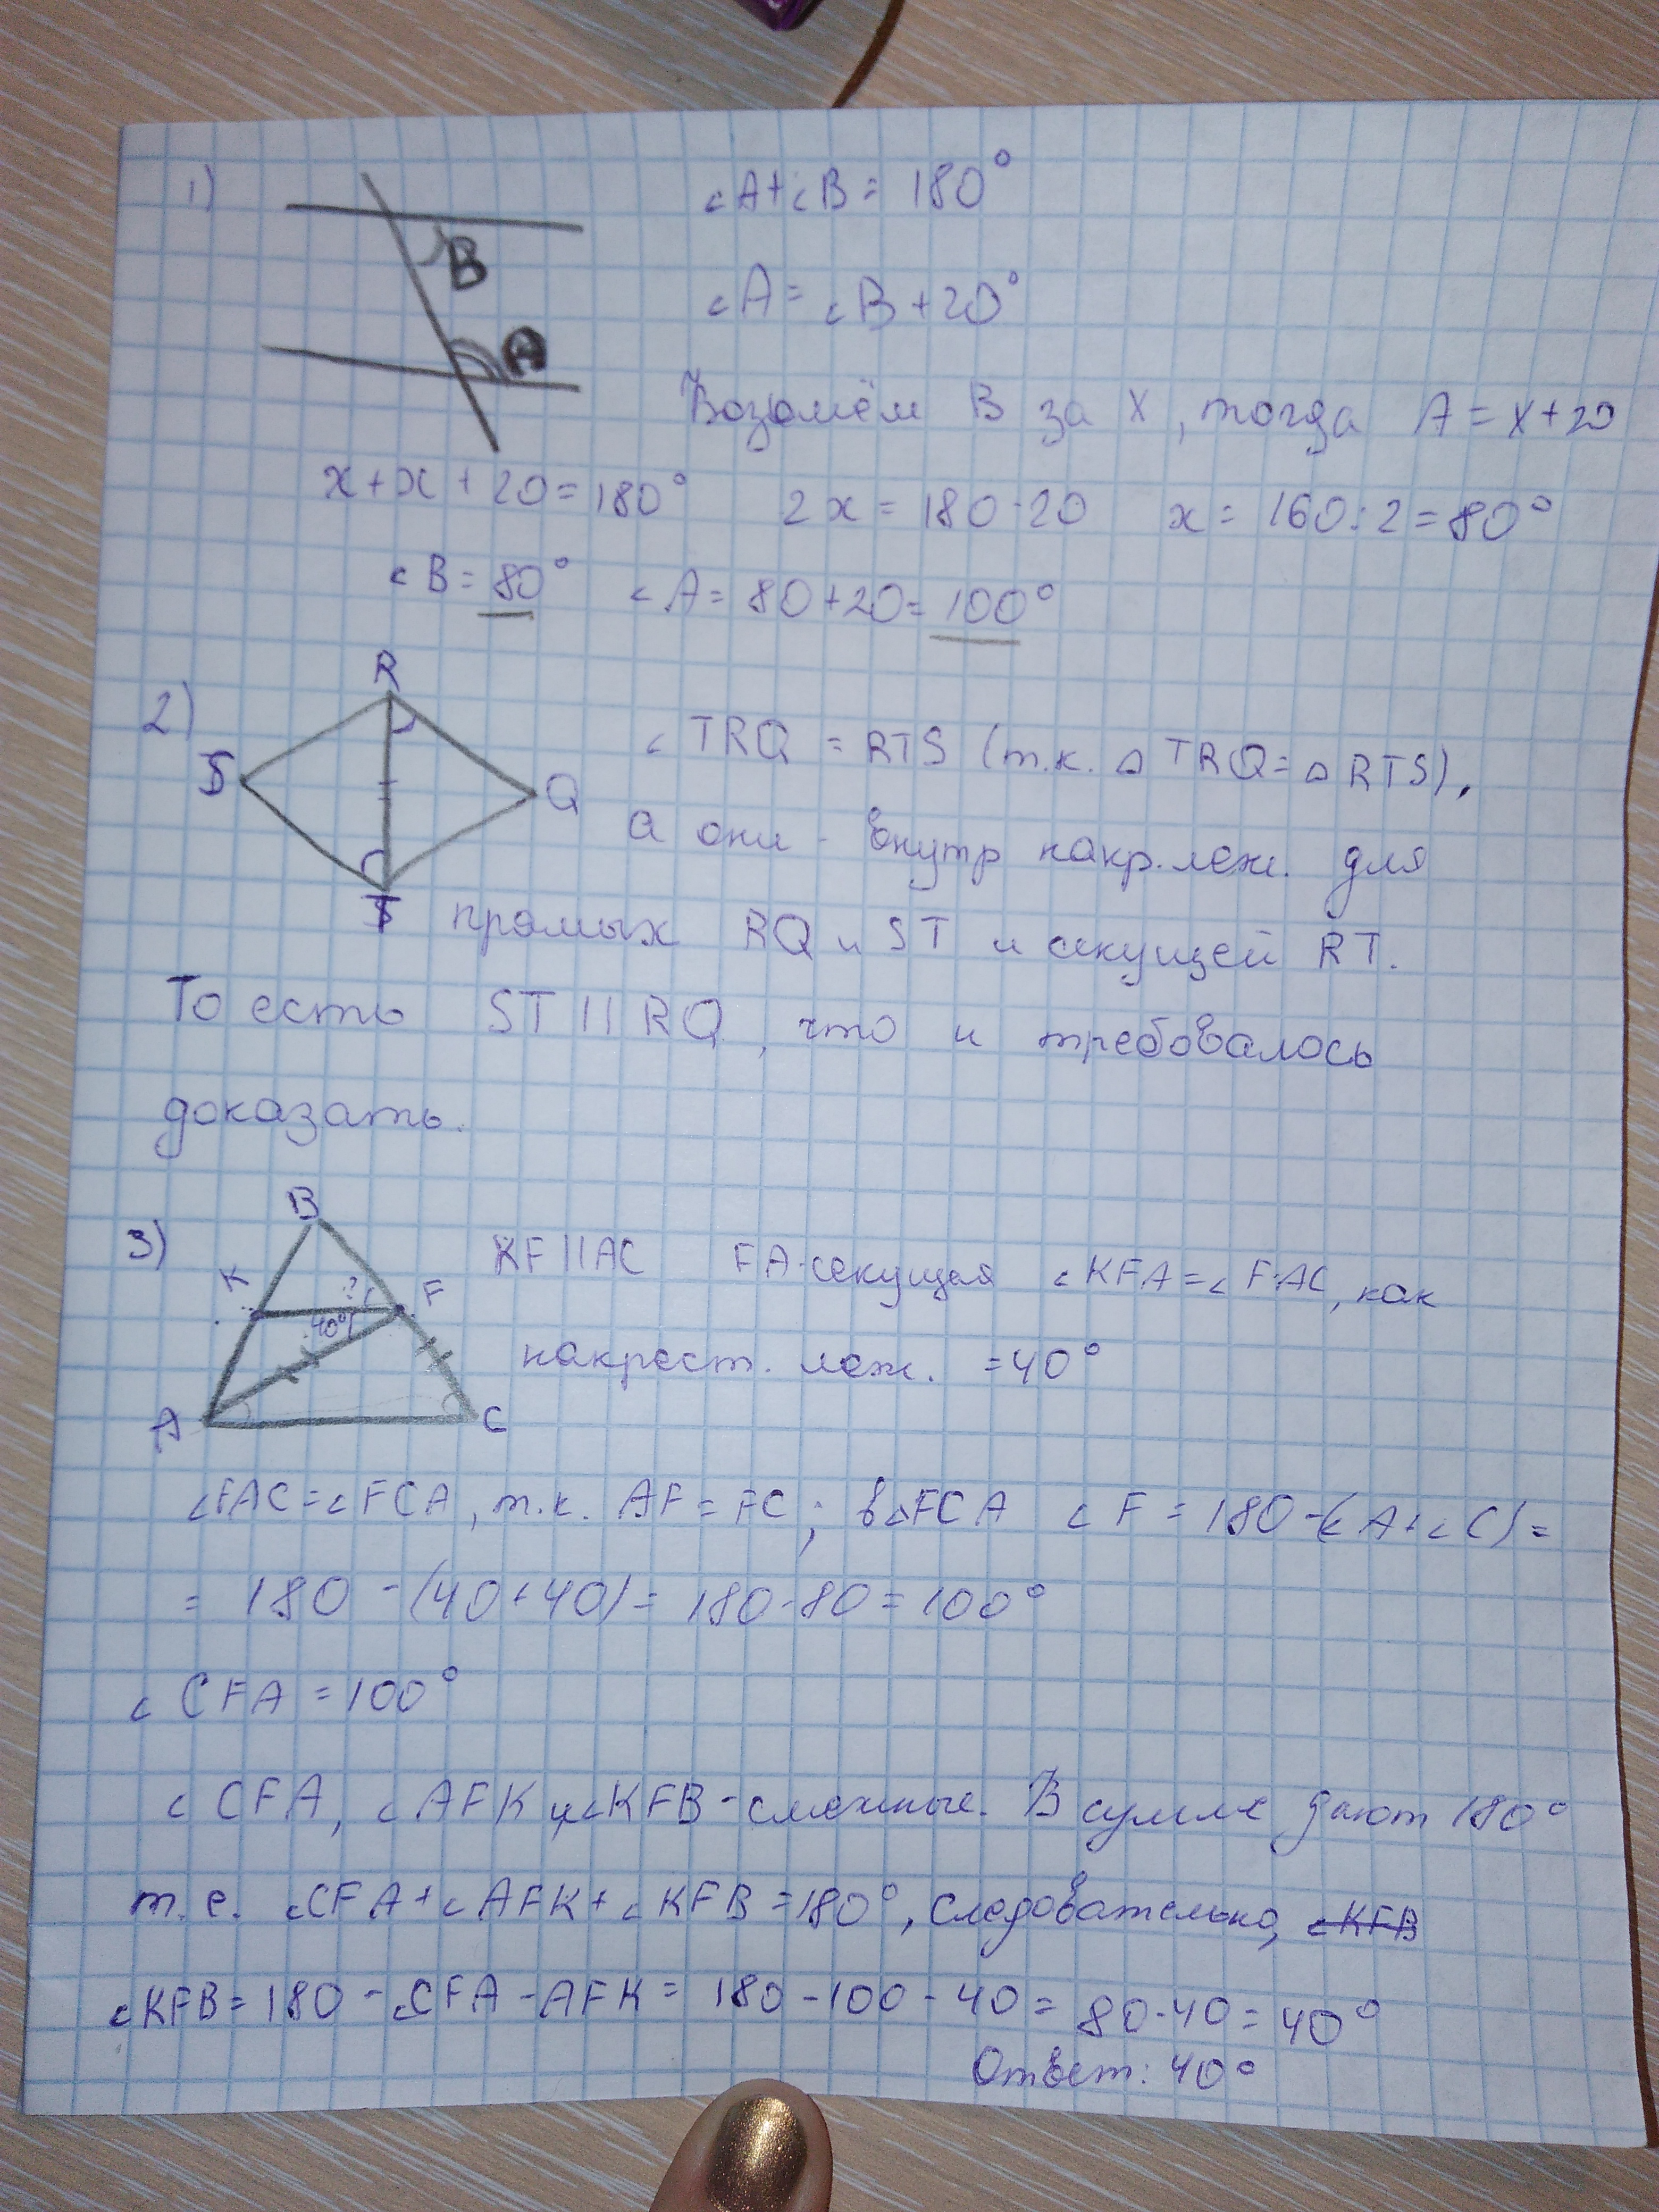 1)
∠A+∠B=180°
B
∠A=∠B+20°
A
Возьмём B за X, тогда A=X+20
x+x+20=180° 2x=180-20 x=160:2=80°
∠B=80° ∠A=80+20=100°
R
2)
∠TRQ=RTS (т.к. △TRQ=△RTS),
S
Q
а они - внутр накр.леж. для
T
прямых RQ и ST и секущей RT.
То есть ST||RQ, что и требовалось
доказать.
B
3)
KF||AC FA-секущая ∠KFA=∠FAC, как
K
?
F
40°
накрест. леж. =40°
A
C
∠FAC=∠FCA, т.к. AF=FC; в△FCA ∠F=180-(∠A+∠C)=
=180-(40+40)=180-80=100°
∠CFA=100°
∠CFA, ∠AFK и∠KFB-смежные. В сумме дают 180°
т.е. ∠CFA+∠AFK+∠KFB=180°, следовательно, ∠KFB
∠KFB=180-∠CFA-AFK=180-100-40=80-40=40°
Ответ: 40°